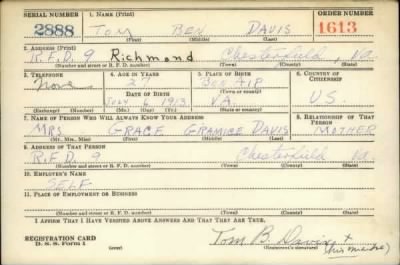 SERIAL NUMBER 1. NAME (Print) ORDER NUMBER
2888 TOM BEN DAVIS 1613
(First) (Middle) (Last)
2. ADDRESS (Print)
R.F.D. 9 Richmond Chesterfield, VA
(Number and street or R. F. D. number) (Town) (County) (State)
3. TELEPHONE 4. AGE IN YEARS 5. PLACE OF BIRTH 6. COUNTRY OF CITIZENSHIP
None 27 BON AIR
DATE OF BIRTH (Town or county)
JULY 6 1913 VA. US
(Exchange) (Number) (Mo.) (Day) (Yr.) (State or country)
7. NAME OF PERSON WHO WILL ALWAYS KNOW YOUR ADDRESS 8. RELATIONSHIP OF THAT PERSON
MRS GRACE GIRAMICE DAVIS MOTHER
(Mr., Mrs., Miss) (First) (Middle) (Last)
9. ADDRESS OF THAT PERSON
R.F.D. 9 Chesterfield Va
(Number and street or R. F. D. number) (Town) (County) (State)
10. EMPLOYER'S NAME
SELF
11. PLACE OF EMPLOYMENT OR BUSINESS
(Number and street or R. F. D. number) (Town) (County) (State)
I AFFIRM THAT I HAVE VERIFIED ABOVE ANSWERS AND THAT THEY ARE TRUE.
REGISTRATION CARD Tom B. Davis +
D. S. S. Form 1 (over) (Registrant's signature) (his mark)